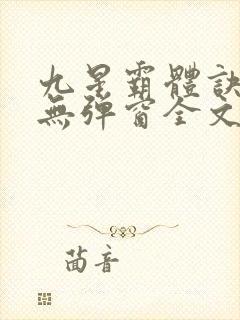 九星霸體訣
無彈窗全文
茴音